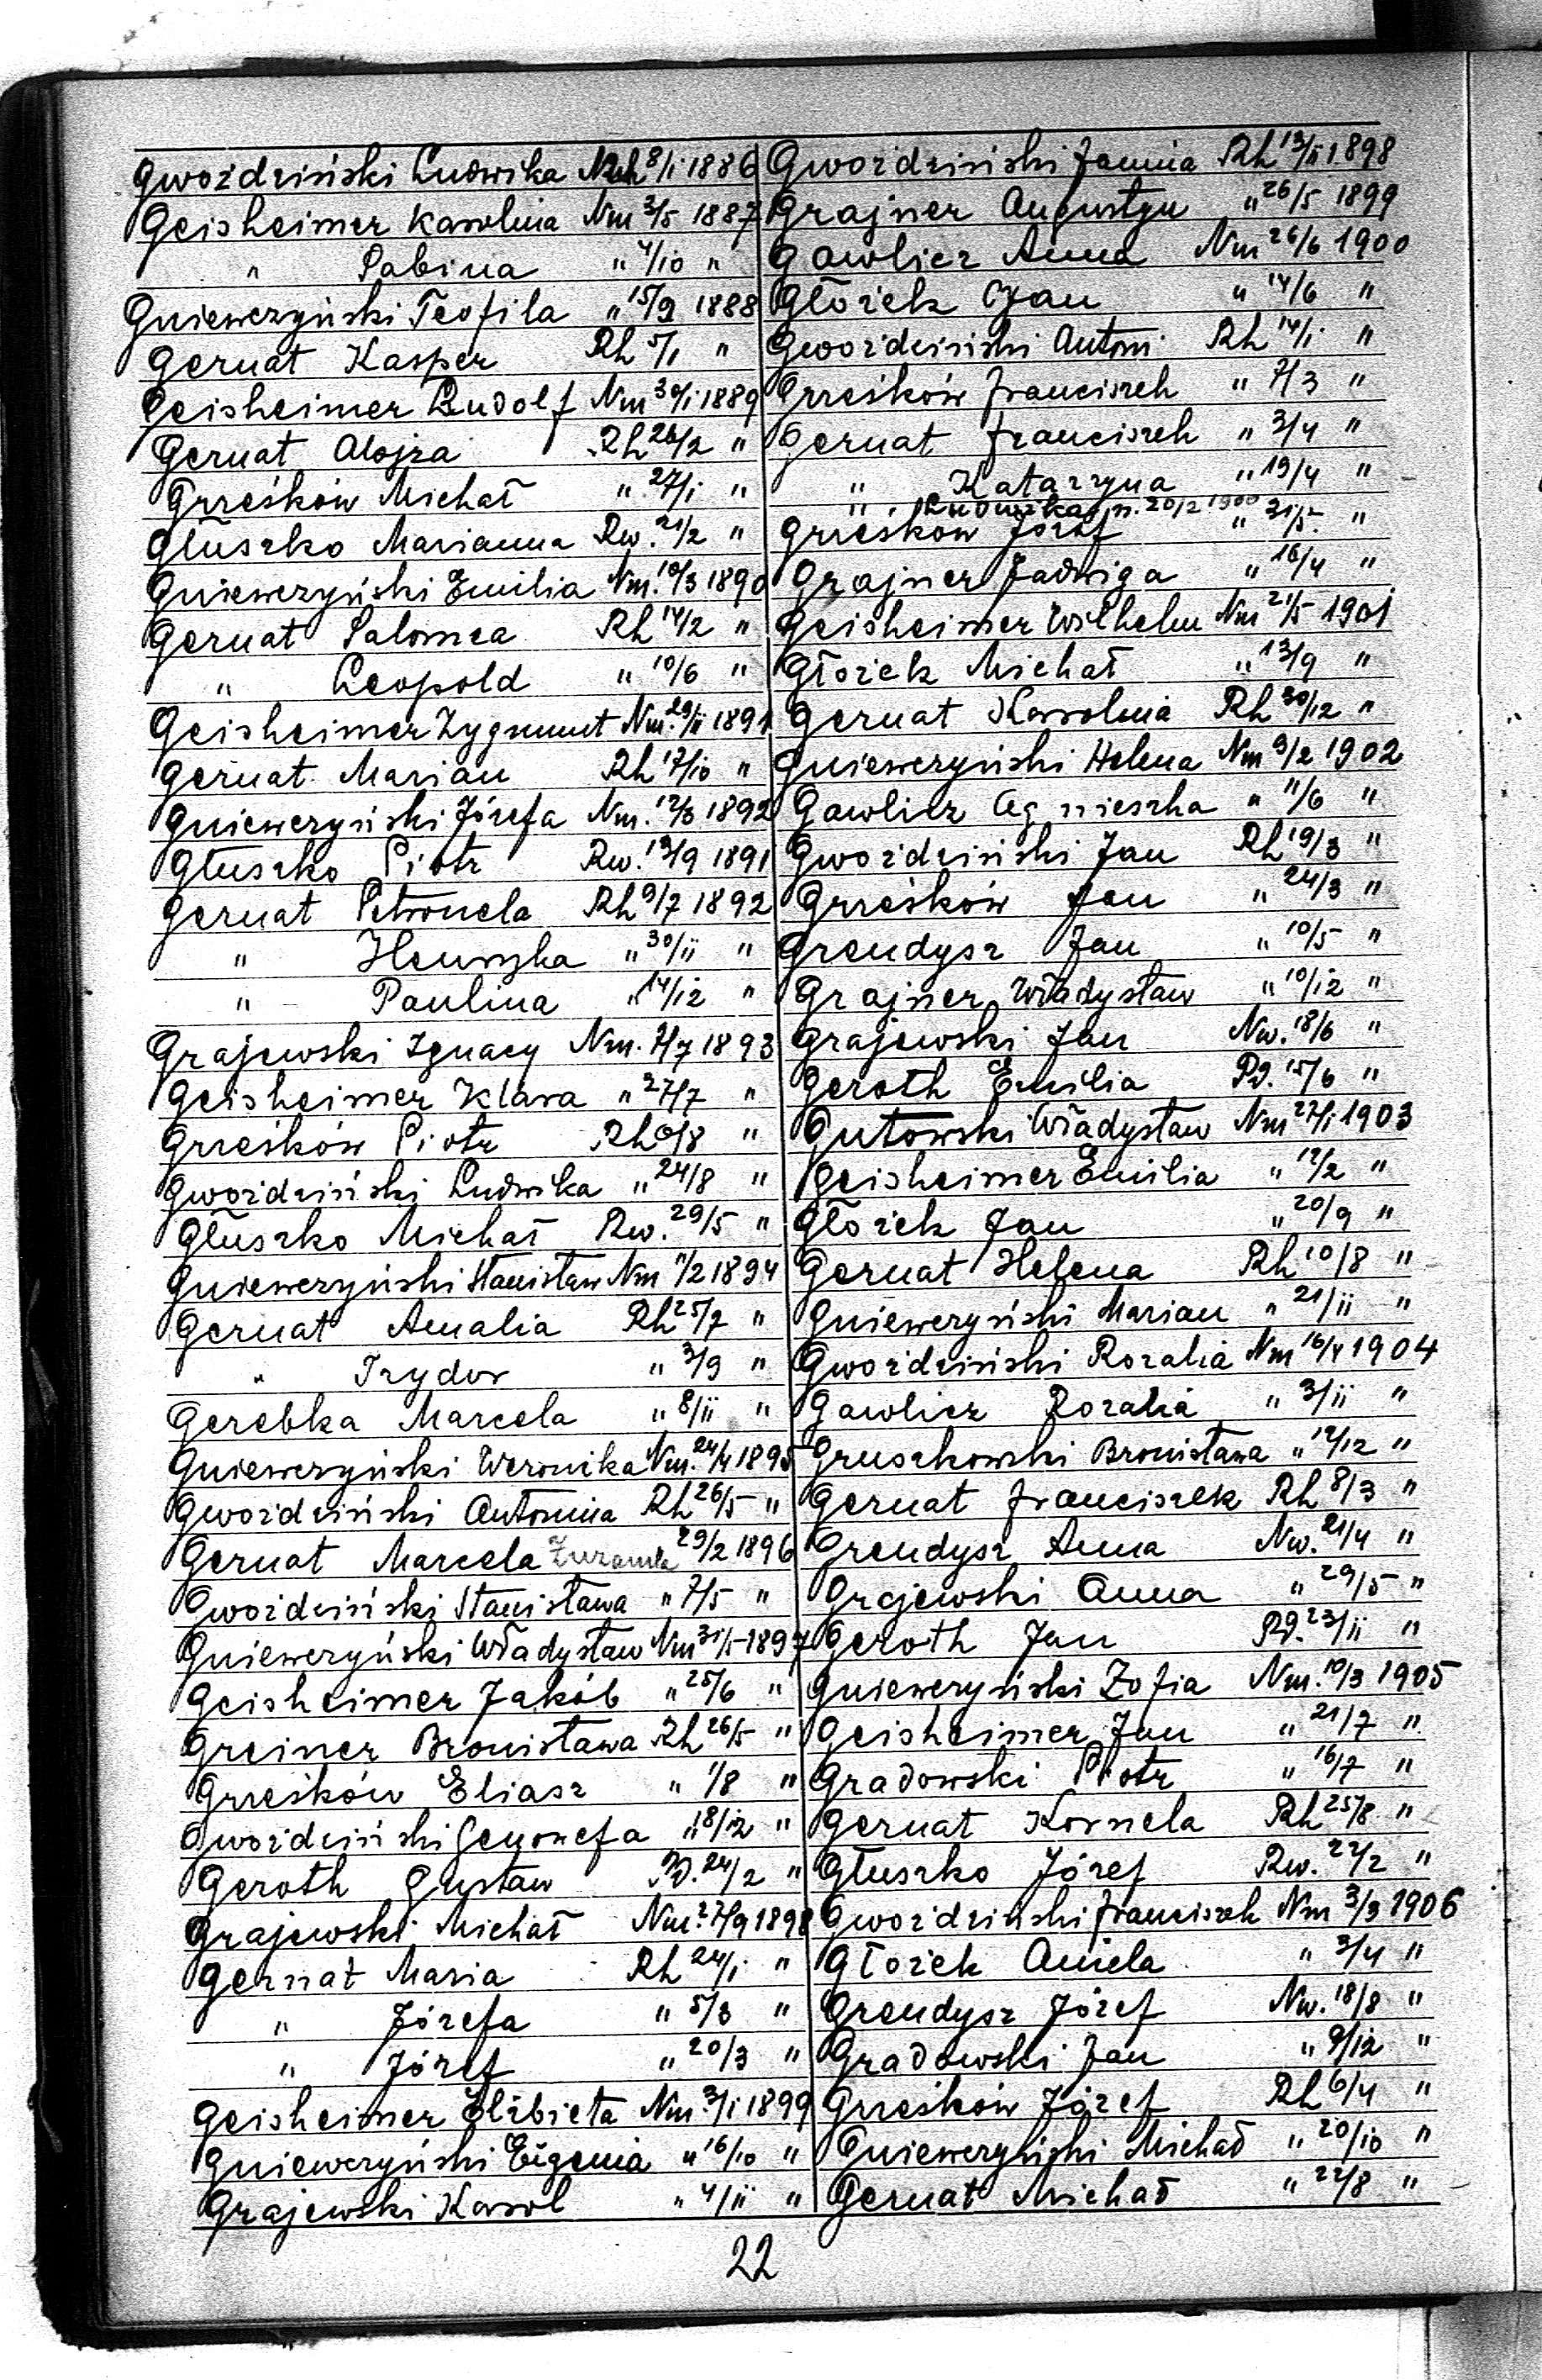 Gwoździński Ludwika Rh 8/1 1886
Geisheimer Karolina Nm 3/5 1887
" Sabina " 4/10 "
Gniewczyński Teofila " 15/9 1888
Gernat Kasper Rh 5/1 "
Geisheimer Rudolf Nm 30/1 1889
Gernat Alojza Rh 26/2 "
Grześków Michał " 27/1 "
Głuszko Marianna Rw. 21/2 "
Gniewczyński Emilia Nm. 10/3 1890
Gernat Salomea Rh 14/2 "
" Leopold " 10/6 "
Geisheimer Zygmunt Nm. 29/11 1891
Gernat Marian Rh 17/10 "
Gniewczyński Józefa Nm. 12/3 1892
Głuszko Piotr Rw. 19/9 1891
Gernat Petronela Rh 9/7 1892
" Henryka " 30/11 "
" Paulina " 14/12 "
Grajewski Ignacy Nm. 7/7 1893
Geisheimer Klara " 27/7 "
Grześków Piotr Rh 6/8 "
Gwoździński Ludwika " 24/8 "
Głuszko Michał Rw. 29/5 "
Gniewczyński Stanisław Nm 11/2 1894
Gernat Amalia Rh 25/7 "
" Izydor " 3/9 "
Gerebka Marcela " 8/11 "
Gniewczyński Weronika Nm. 24/4 1895
Gwoździński Antonina Rh 26/5 "
Gernat Marcela 29/2 1896
Gwoździński Stanisława " 7/5 "
Gniewczyński Władysław Nm 31/5 1897
Geisheimer Jakób " 25/6 "
Greiner Bronisława Rh 26/5 "
Grześków Eliasz " 1/8 "
Gwoździński Genowefa " 18/12 "
Geroth Gustaw Pd. 24/2 "
Grajewski Michał Nm. 27/9 1898
Gernat Maria Rh 24/1 "
" Józefa " 5/3 "
" Józef " 20/3 "
Geisheimer Elżbieta Nm. 3/1 1899
Gniewczyński Eugenia " 16/10 "
Grajewski Karol " 4/11 "
Gwoździński Janina Rh 13/11 1898
Grajner Augustyn " 26/5 1899
Gawlicz Anna Nm 26/6 1900
Głożek Jan " 14/6 "
Gwoździński Antoni Rh 14/1 "
Grześków Franciszek " 7/3 "
Gernat Franciszek " 3/4 "
" Katarzyna " 19/4 "
" Ludwika n. 20/2 1900
Grześków Józef " 31/5. "
Grajner Jadwiga " 16/4 "
Geisheimer Wilhelm Nm 21/5 1901
Głożek Michał " 13/9 "
Gernat Karolina Rh 30/12 "
Gniewczyński Helena Nm 9/2 1902
Gawlicz Agnieszka " 11/6 "
Gwoździński Jan Rh 19/3 "
Grześków Jan " 24/3 "
Grendysz Jan " 10/5 "
Grajner Władysław " 10/12 "
Grajewski Jan Nw. 18/6 "
Geroth Emilia Pd. 15/6 "
Gutowski Władysław Nm 27/1 1903
Geisheimer Emilia " 12/2 "
Głożek Jan " 20/9 "
Gernat Helena Rh 10/8 "
Gniewczyński Marian " 21/11 "
Gwoździński Rozalia Nm 16/4 1904
Gawlicz Rozalia " 3/11 "
Gruszkowski Bronisława " 12/12 "
Gernat Franciszek Rh 8/3 "
Grendysz Anna Nw. 21/4 "
Grajewski Anna " 29/5 "
Geroth Jan Pd. 23/11 "
Gniewczyński Zofia Nm. 10/3 1905
Geisheimer Jan " 21/7 "
Gradowski Piotr " 16/7 "
Gernat Kornela Rh 25/8 "
Głuszko Józef Rw. 22/2 "
Gwoździński Franciszek Nm 3/3 1906
Głożek Aniela " 3/4 "
Grendysz Józef Nw. 18/8 "
Gradowski Jan " 9/12 "
Grześków Józef Rh 6/4 "
Gniewczyński Michał " 20/10 "
Gernat Michał " 22/8 "
22